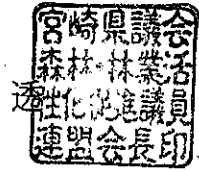 宮崎県議会
森林・林業活
透
性化促進議員
連盟会長印